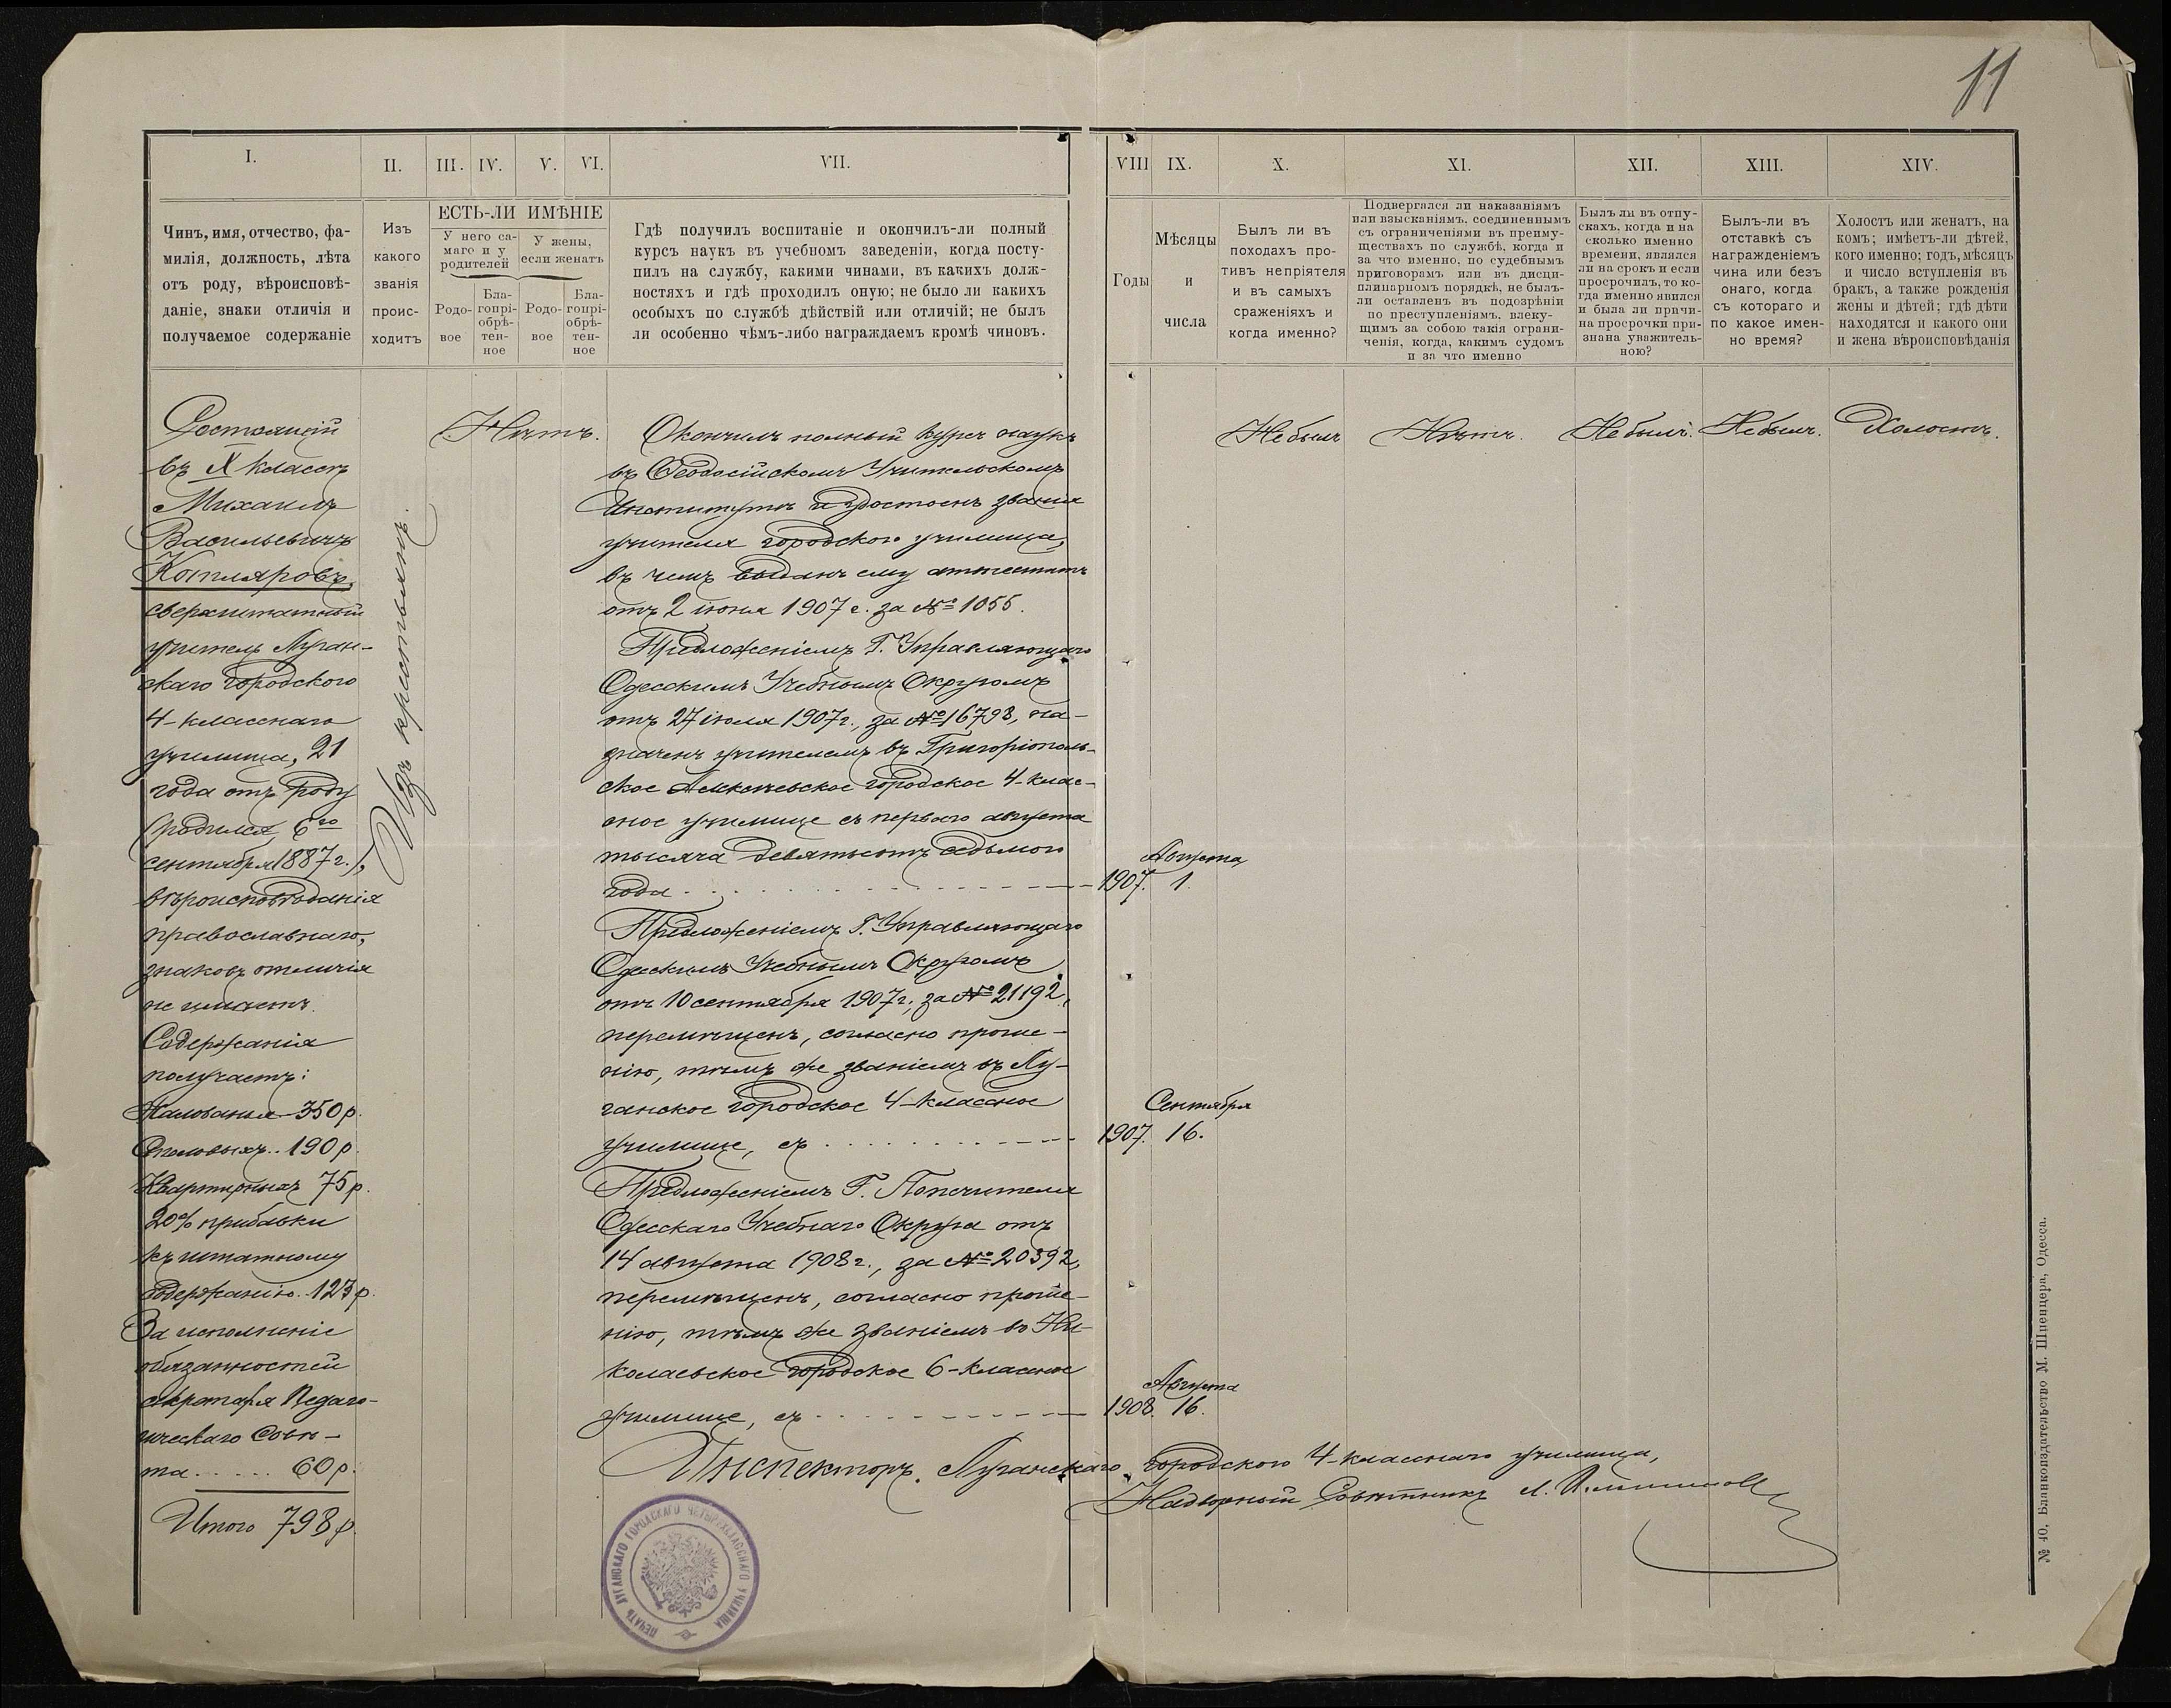 11
I.
II.
III.
IV.
V.
VI.
VII.
VIII
IX.
X.
XI.
XII.
XIII.
XIV.
Чинъ, имя, отчество, фа-
милія, должность, лѣта
отъ роду, вѣроисповѣ-
даніе, знаки отличія и
получаемое содержаніе
Изъ
какого
званія
проис-
ходитъ
ЕСТЬ-ЛИ ИМѢНІЕ
У него са-
маго и у
родителей
У жены,
если женатъ
Родо-
вое
Бла-
гопрі-
обрѣ-
тен-
ное
Родо-
вое
Бла-
гопрі-
обрѣ-
тен-
ное
Гдѣ получилъ воспитаніе и окончилъ-ли полный
курсъ наукъ въ учебномъ заведеніи, когда посту-
пилъ на службу, какими чинами, въ какихъ долж-
ностяхъ и гдѣ проходилъ оную; не было ли какихъ
особыхъ по службѣ дѣйствій или отличій; не былъ
ли особенно чѣмъ-либо награждаемъ кромѣ чиновъ.
Годы
Мѣсяцы
и
числа
Былъ ли въ
походахъ про-
тивъ непріятеля
и въ самыхъ
сраженіяхъ и
когда именно?
Подвергался ли наказаніямъ
или взысканіямъ, соединеннымъ
съ ограниченіями въ преиму-
ществахъ по службѣ, когда и
за что именно, по судебнымъ
приговорамъ или въ дисци-
плинарномъ порядкѣ, не былъ-
ли оставленъ въ подозрѣніи
по преступленіямъ, влеку-
щимъ за собою такія ограни-
ченія, когда, какимъ судомъ
и за что именно
Былъ ли въ отпу-
скахъ, когда и на
сколько именно
времени, являлся
ли на срокъ и если
просрочилъ, то ко-
гда именно явился
и была ли причи-
на просрочки при-
знана уважитель-
ною?
Былъ-ли въ
отставкѣ съ
награжденіемъ
чина или безъ
онаго, когда
съ котораго и
по какое имен-
но время?
Холостъ или женатъ, на
комъ; имѣетъ-ли дѣтей,
кого именно; годъ, мѣсяцъ
и число вступленія въ
бракъ, а также рожденія
жены и дѣтей; гдѣ дѣти
находятся и какого они
и жена вѣроисповѣданія
Состоящій
въ X классѣ
Михаилъ
Васильевичъ
Котляровъ,
сверхштатный
учитель Луган-
скаго городского
4-класснаго
училища, 21
года отъ роду
(родился 6го
сентября 1887 г.),
вѣроисповѣданія
православнаго,
знаковъ отличія
не имѣетъ.
Содержанія
получаетъ:
Жалованья - 350 р.
Столовыхъ.. 190 р.
Квартирныхъ 75 р.
20% прибавки
къ штатному
содержанію. 123 р.
За исполненіе
обязанностей
секретаря Педаго-
гическаго Совѣ-
та..... 60 р.
Итого 798 р.
Изъ крестьянъ.
Нѣтъ.
Окончилъ полный курсъ наукъ
въ Ѳеодосійскомъ Учительскомъ
Институтѣ и удостоенъ званія
учителя городского училища,
въ чемъ выданъ ему аттестатъ
отъ 2 іюня 1907 г. за № 1055.
Предложеніемъ Г. Управляющаго
Одесскимъ Учебнымъ Округомъ
отъ 27 іюля 1907 г., за № 16798, на-
значенъ учителемъ въ Григоріополь-
ское Алексѣевское городское 4-клас-
сное училище съ перваго августа
тысяча девятьсотъ седьмого
года - - - - -
Августа
1907. 1.
Предложеніемъ Г. Управляющаго
Одесскимъ Учебнымъ Округомъ
отъ 10 сентября 1907 г., за № 21192,
перемѣщенъ, согласно проше-
нію, тѣмъ же званіемъ въ Лу-
ганское городское 4-классное
училище, съ - - - - -
Сентября
1907. 16.
Предложеніемъ Г. Попечителя
Одесскаго Учебнаго Округа отъ
14 августа 1908 г., за № 20392,
перемѣщенъ, согласно проше-
нію, тѣмъ же званіемъ въ Ни-
колаевское городское 6-классное
училище, съ - - - - -
Августа
1908. 16.
Не былъ
Нѣтъ.
Не былъ.
Не былъ.
Холостъ.
Инспекторъ Луганскаго городского 4-класснаго училища,
Надворный Совѣтникъ
ПЕЧАТЬ ЛУГАНСКАГО ГОРОДСКАГО ЧЕТЫРЕХКЛАССНАГО УЧИЛИЩА
№ 40, Бланкоиздательство М. Шпенцера, Одесса.